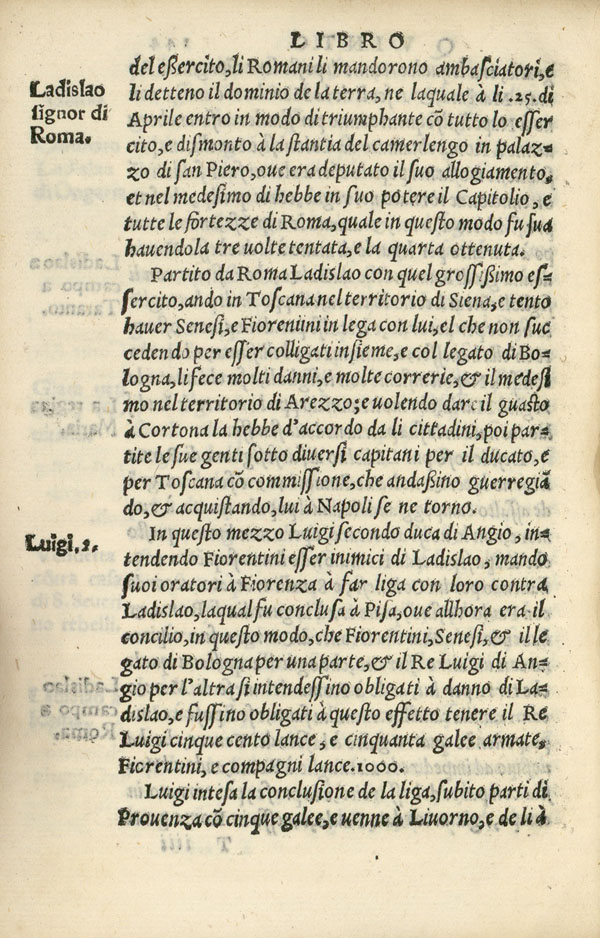 LIBRO
del eßercito, li Romani li mandorono ambasciatori, e
Ladislao
signor di
Roma.
li detteno il dominio de la terra, ne laquale à li .25. di
Aprile entro in modo di triumphante cõ tutto lo esser
cito, e dismonto à la stantia del camerlengo in palaz-
zo di san Piero, oue era deputato il suo allogiamento,
et nel medesimo di hebbe in suo potere il Capitolio, e
tutte le fortezze di Roma, quale in questo modo fu sua
hauendola tre uolte tentata, e la quarta ottenuta.
Partito da Roma Ladislao con quel grossißimo es-
sercito, ando in Toscana nel territorio di Siena, e tento
hauer Senesi, e Fiorentini in lega con lui, el che non suc
cedendo per esser colligati insieme, e col legato di Bo-
logna, li fece molti danni, e molte correrie, & il medesi
mo nel territorio di Arezzo; e uolendo dare il guasto
à Cortona la hebbe d'accordo da li cittadini, poi par-
tite le sue genti sotto diuersi capitani per il ducato, e
per Toscana cõ commissione, che andaßino guerregiã
do, & acquistando, lui à Napoli se ne torno.
Luigi. 2.
In questo mezzo Luigi secondo duca di Angio, in-
tendendo Fiorentini esser inimici di Ladislao, mando
suoi oratori à Fiorenza à far liga con loro contra
Ladislao, laqual fu conclusa à Pisa, oue allhora era il
concilio, in questo modo, che Fiorentini, Senesi, & il le
gato di Bologna per una parte, & il Re Luigi di An-
gio per l'altra si intendessino obligati à danno di La-
dislao, e fussino obligati à questo effetto tenere il Re
Luigi cinque cento lance, e cinquanta galee armate,
Fiorentini, e compagni lance. 1000.
Luigi intesa la conclusione de la liga, subito parti di
Prouenza cõ cinque galee, e uenne à Liuorno, e de li à